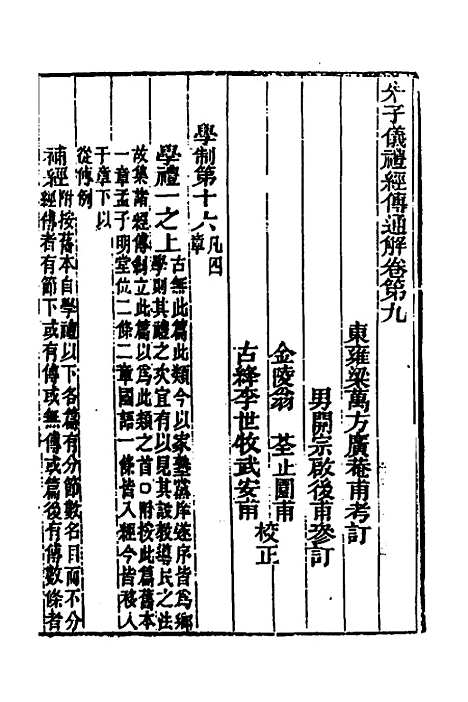 朱子儀禮經傳通解卷第九
東雍梁萬方廣菴甫考訂
男開宗啟後甫參訂
金陵翁　荃止園甫
古絳李世牧武安甫　校正
學制第十六凡四章
學禮一之上古無此篇此類今以家塾黨庠遂序皆為鄉
學則其禮之次宜有以見其設教導民之法
故集諸經傳創立此篇以為此類之首○附按此篇舊本
一章孟子明堂位二條二章國語一條皆入經今皆移入
于章下以
從傳例
補經附按舊本自學禮以下各篇有分節數名目而不分
經傳者有節下或有傳或無傳或篇後有傳數條者